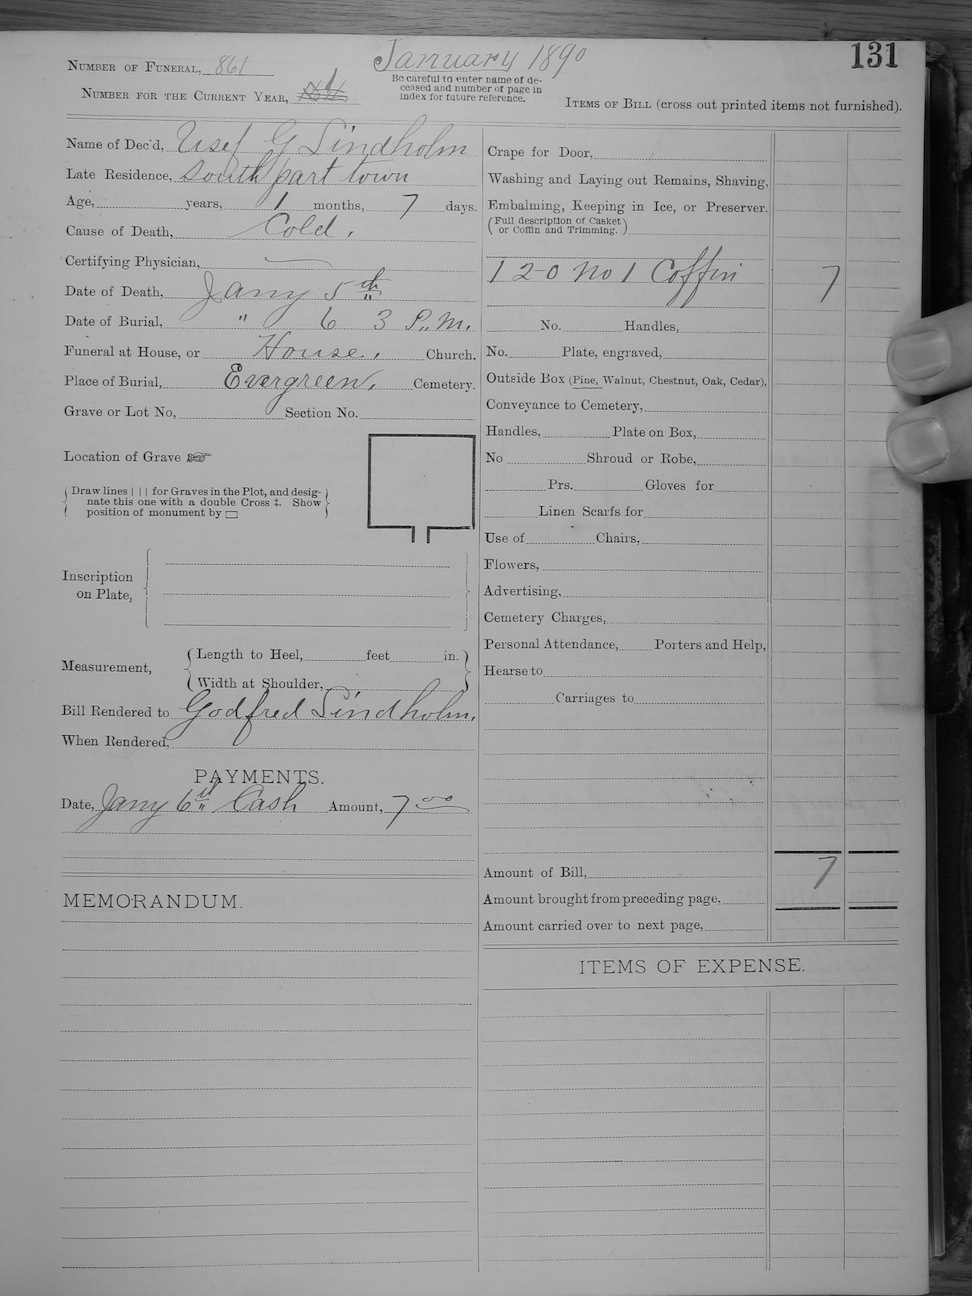 131
January 1890
NUMBER OF FUNERAL, 861
NUMBER FOR THE CURRENT YEAR, 1
Be careful to enter name of de-
ceased and number of page in
index for future reference.
ITEMS OF BILL (cross out printed items not furnished).
Name of Dec'd, G Lindholm
Late Residence, South part town
Age, years, 1 months, 7 days.
Cause of Death, Cold.
Certifying Physician,
Date of Death, Jany 5th
Date of Burial, " 6 3 P.M.
Funeral at House, or House. Church.
Place of Burial, Evergreen. Cemetery.
Grave or Lot No, Section No.
Location of Grave ☞
Draw lines | | | for Graves in the Plot, and desig-
nate this one with a double Cross ‡. Show
position of monument by ▭
Inscription
on Plate,
Measurement,
Length to Heel, feet in.
Width at Shoulder,
Bill Rendered to Godfred Lindholm.
When Rendered,
PAYMENTS.
Date, Jany 6th Cash Amount, 7 00
MEMORANDUM.
Crape for Door,
Washing and Laying out Remains, Shaving,
Embalming, Keeping in Ice, or Preserver.
(Full description of Casket
or Coffin and Trimming.)
1 2-0 No 1 Coffin 7
No. Handles,
No. Plate, engraved,
Outside Box (Pine, Walnut, Chestnut, Oak, Cedar),
Conveyance to Cemetery,
Handles, Plate on Box,
No Shroud or Robe,
Prs. Gloves for
Linen Scarfs for
Use of Chairs,
Flowers,
Advertising,
Cemetery Charges,
Personal Attendance, Porters and Help,
Hearse to
Carriages to
Amount of Bill, 7
Amount brought from preceding page,
Amount carried over to next page,
ITEMS OF EXPENSE.